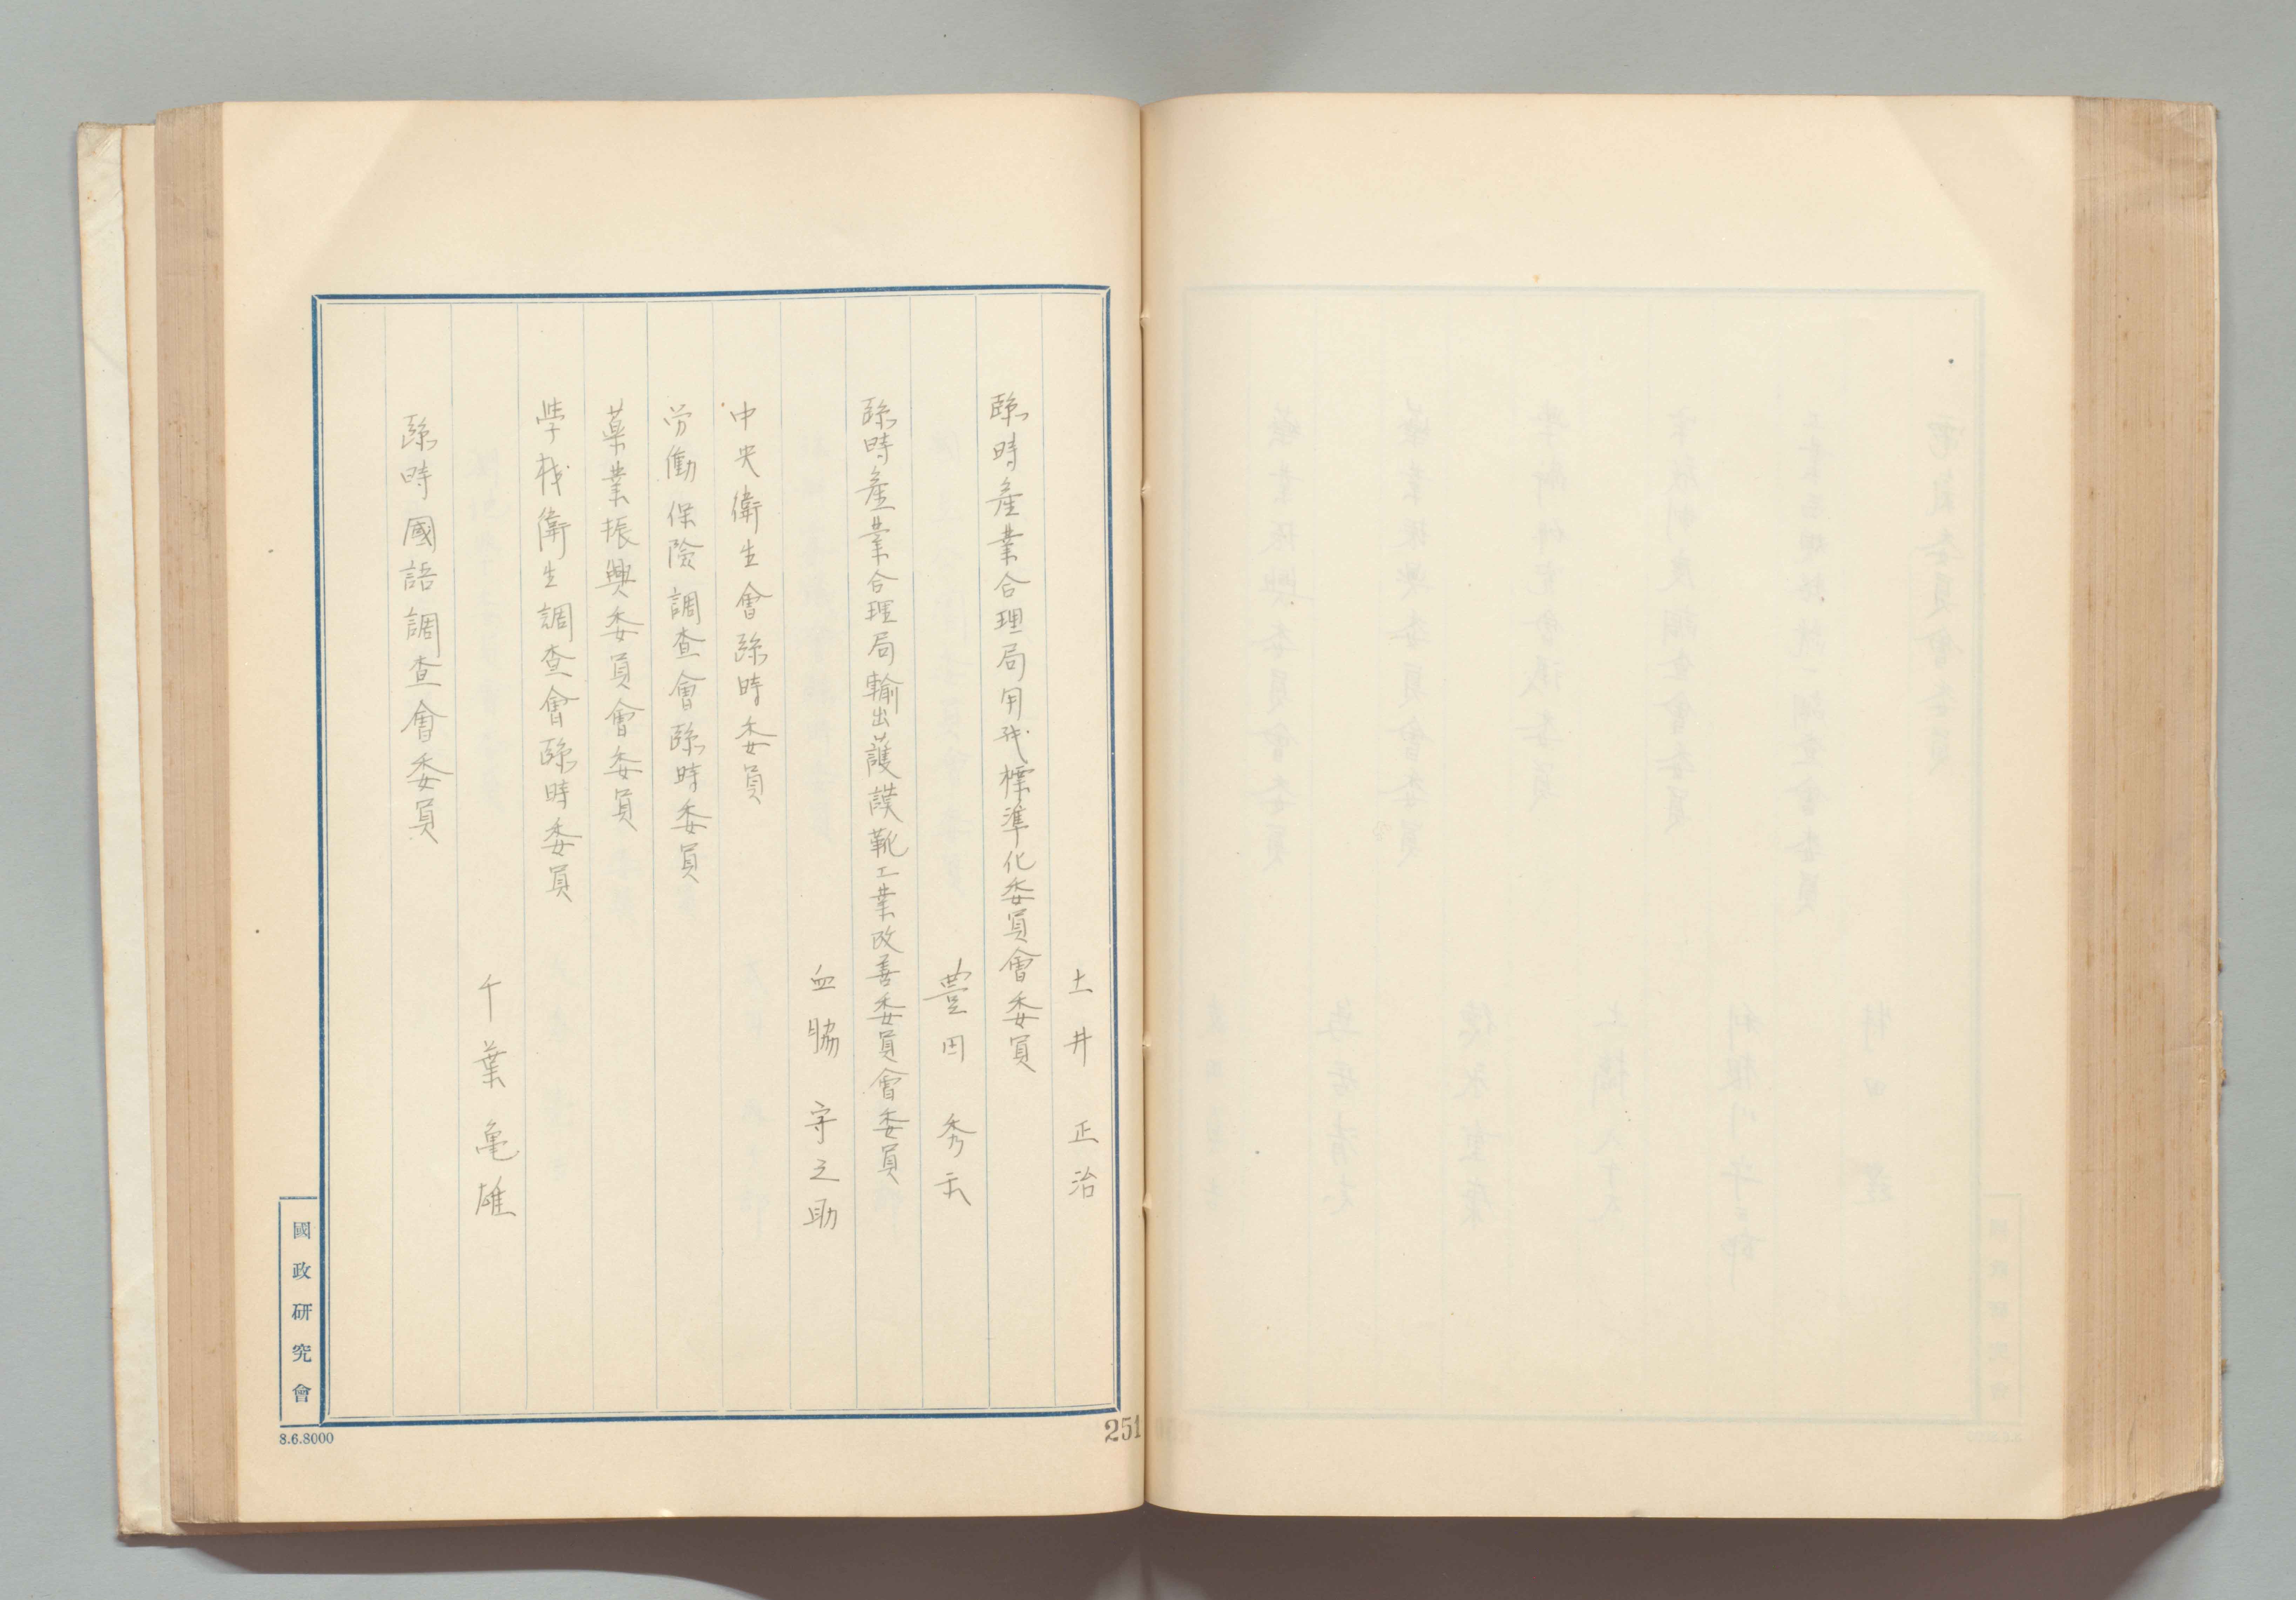 土井正治
臨時産業合理局用紙標準化委員會委員
豊田秀吉
臨時産業合理局輸出護謨靴工業改善委員會委員
血脇守之助
中央衛生會臨時委員
労働保險調査會臨時委員
薬業振興委員會委員
學校衛生調査會臨時委員
千葉亀雄
臨時國語調査會委員
國政研究會
8.6.8000
251